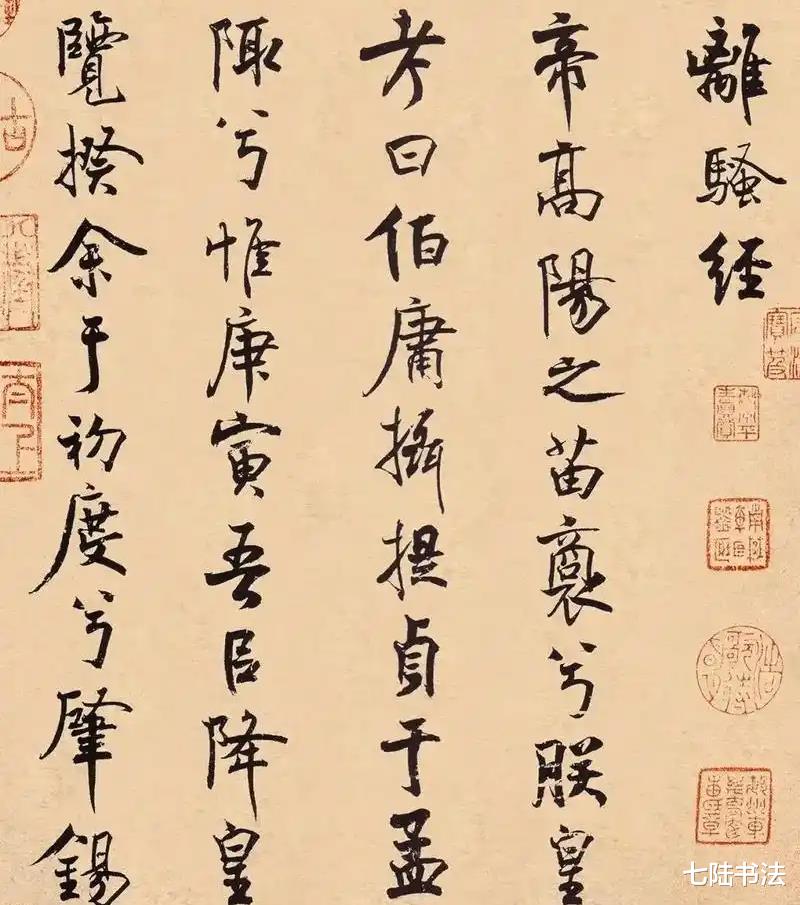 離騷經
帝高陽之苗裔兮朕皇
考曰伯庸攝提貞于孟
陬兮惟庚寅吾㠯降皇
覽揆余于初度兮肇錫
七陆书法